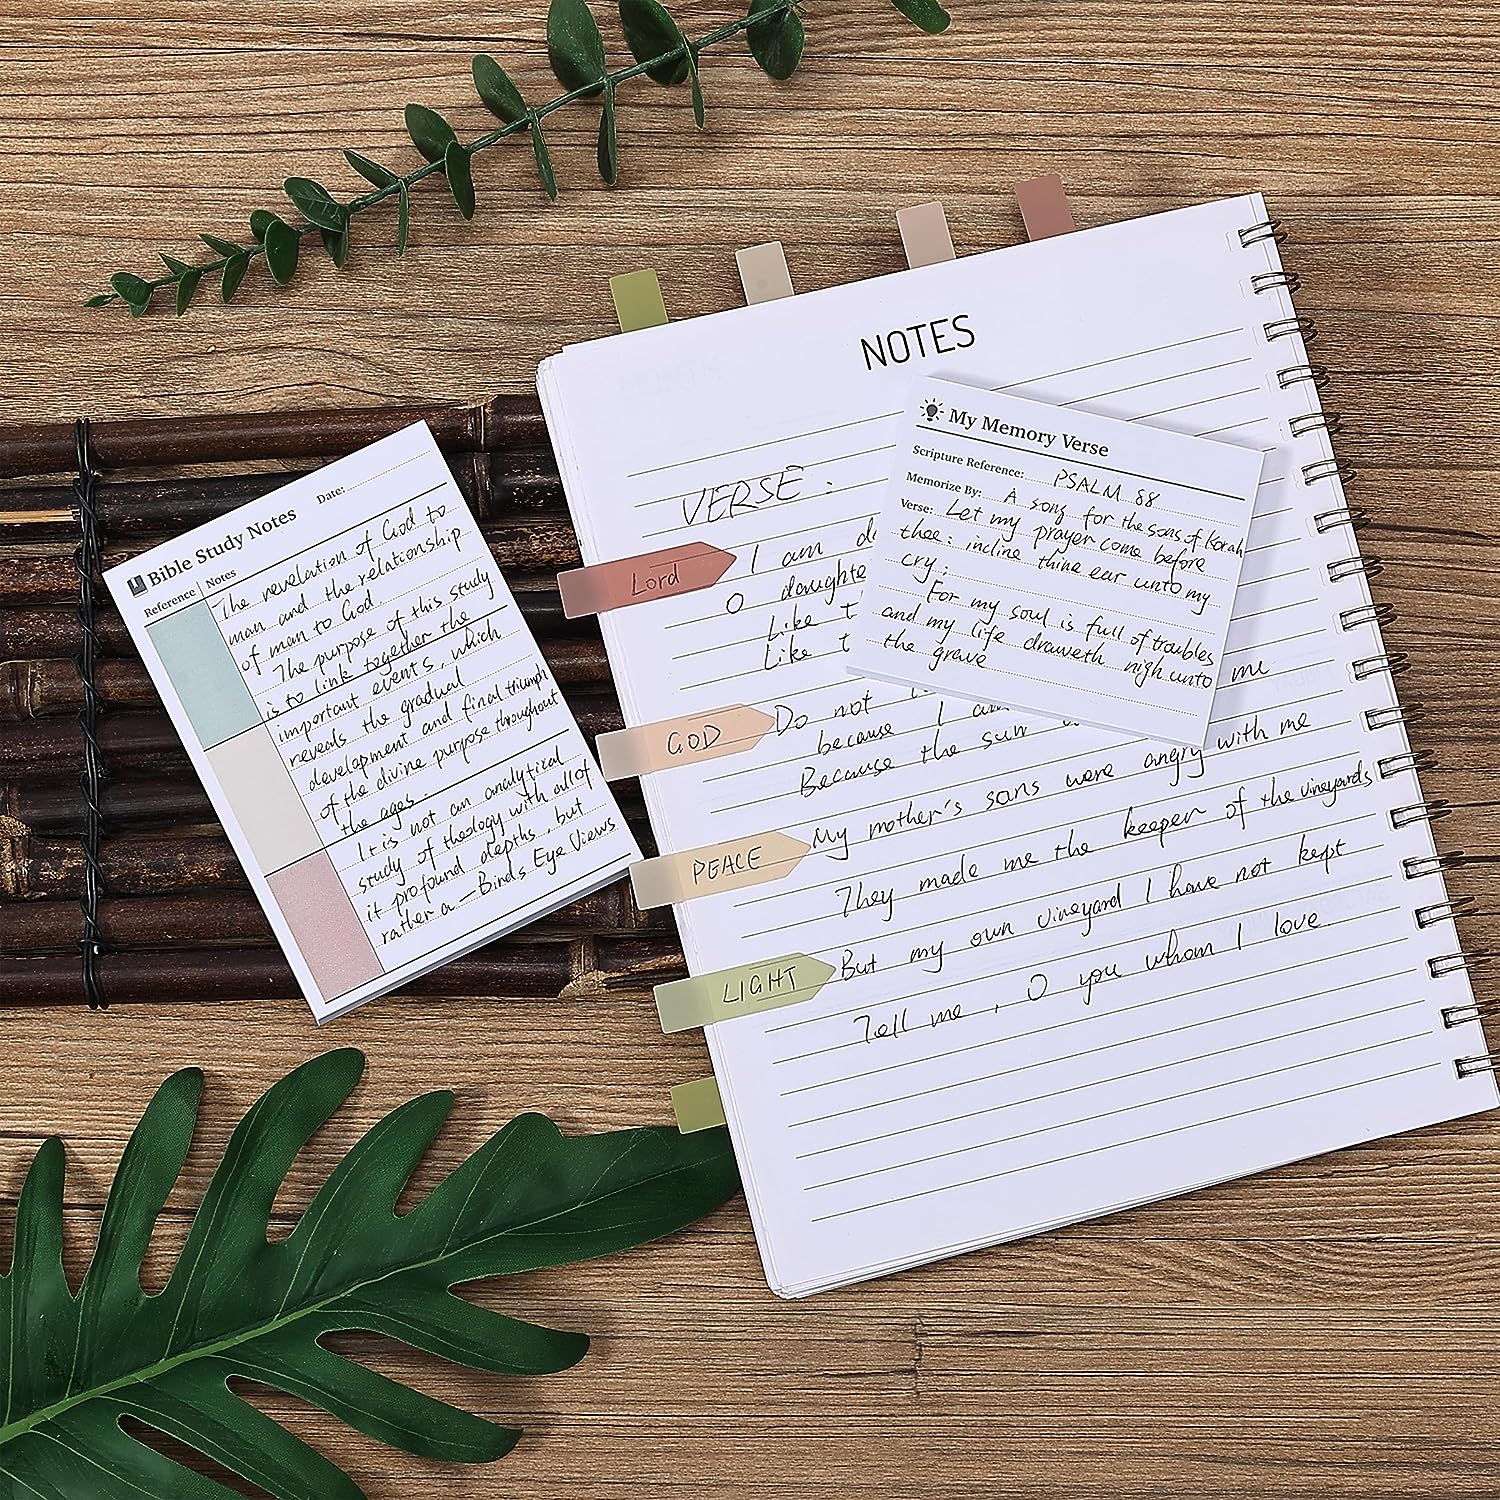 Bible Study Notes
Date:
Reference
Notes
The revelation of God to
man and the relationship
of man to God
The purpose of this study
is to link together the
important events, which
reveals the gradual
development and final triumph
of the divine purpose throughout
the ages.
It is not an analytical
study of theology with all of
it profound depths, but
rather a — Birds Eye Views
NOTES
VERSE:
I am
O daughte
Like t
Like t
me
Do not
because I am
Because the sun
My mother's sons were angry with me
They made me the keeper of the vineyards
But my own vineyard I have not kept
Tell me, O you whom I love.
Lord
GOD
PEACE
LIGHT
My Memory Verse
Scripture Reference: PSALM 88
Memorize By: A song for the sons of Korah
Verse: Let my prayer come before
thee: incline thine ear unto my
cry:
For my soul is full of troubles
and my life draweth nigh unto
the grave